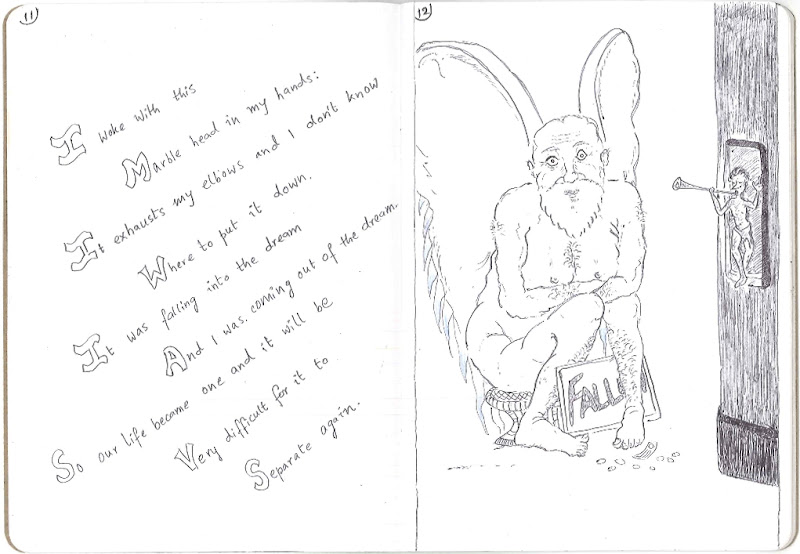 11
I woke with this
Marble head in my hands:
It exhausts my elbows and I don't know
Where to put it down.
It was falling into the dream
And I was coming out of the dream.
So our life became one and it will be
Very difficult for it to
Separate again.
12
FALL